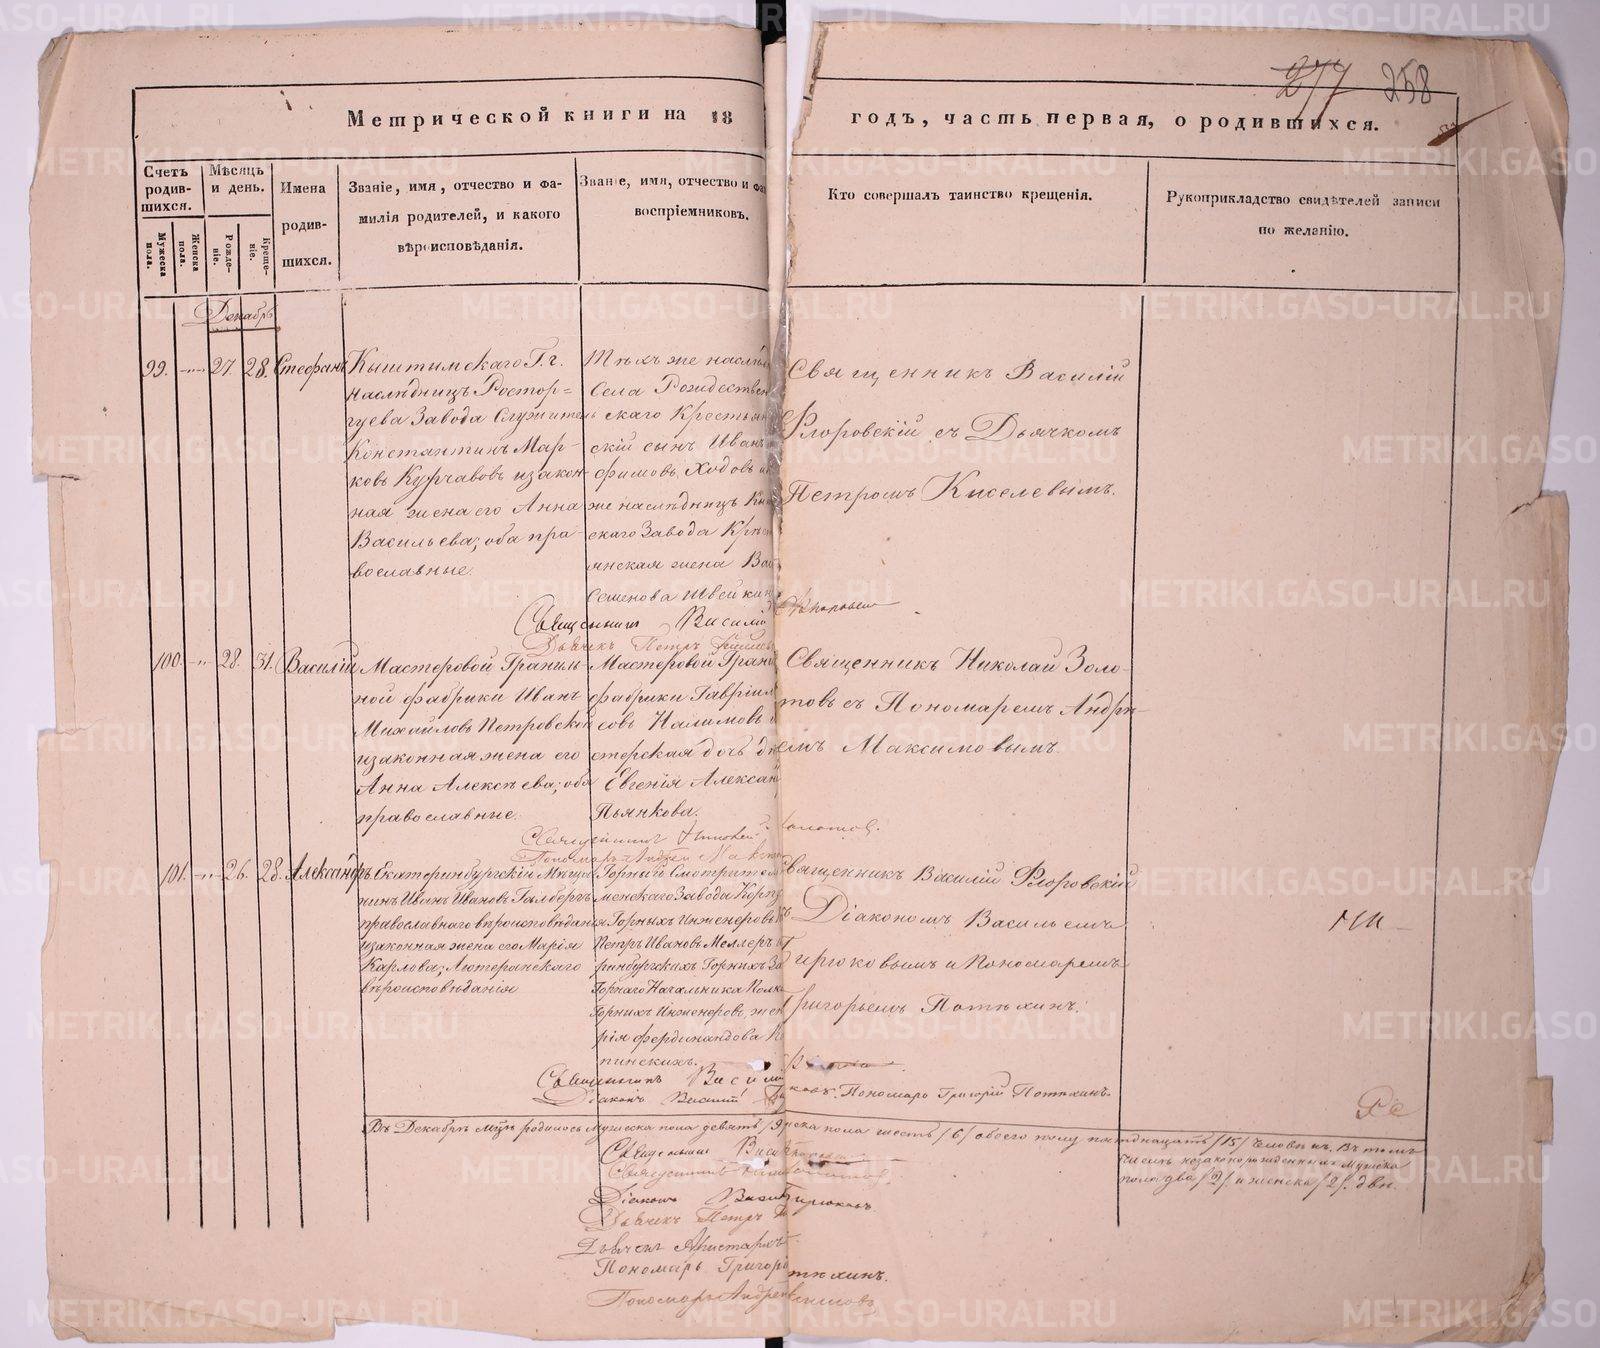 277 258
Метрической книги на 18 годъ, часть первая, о родившихся.
Счетъ родив-шихся.
Мужеска пола.
Женска пола.
Мѣсяцъ и день.
Рожде-ніе.
Креще-ніе.
Имена
родив-
шихся.
Званіе, имя, отчество и фа-
милія родителей, и какого
вѣроисповѣданія.
Званіе, имя, отчество и фа
воспріемниковъ.
Кто совершалъ таинство крещенія.
Рукоприкладство свидѣтелей записи
по желанію.
Декабрь
99. 27. 28. Стефанъ
Кыштымскаго Г. г.
наслѣдницъ Растор=
гуева Завода Служитель
Константинъ Мар-
ковъ Курчавовъ изакон-
ная жена его Анна
Васильева; оба пра-
вославные.
Тѣхъ же наслѣд
Села Рождествен
скаго Крестьян
скій сынъ Иванъ
фимовъ Ходовъ и
же наслѣдницъ К
скаго Завода Крѣст
янская жена Ва
Семенова Швейкин
Священникъ Василій
Флоровскій съ Дьячкомъ
Петромъ Киселевымъ.
Священникъ Васили Флоровс
Дьячекъ Петръ
100. 28. 31. Василій
Мастеровой Граниль-
ной фабрики Иванъ
Михайловъ Петровской
изаконная жена его
Анна Алексѣева; оба
православные.
Мастеровой Грани
фабрики Гавріил
совъ Налимовъ и
стерская дочь дѣ
Евгенія Алексан
Пьянкова.
Священникъ Николай Золо-
товъ съ Пономаремъ Андрѣ-
емъ Максимовымъ.
Священникъ Николай Золотовъ.
Пономарь Андрей Макс
101. 26. 28. Александръ
Екатеринбургскій Мѣща
нинъ Иванъ Ивановъ Гальбергъ
православнаго вѣроисповѣданія
изаконная жена его Марія
Карлова; Лютеранскаго
вѣроисповѣданія
Горнаго Смотрител
менскаго Завода Корпу
Горныхъ Инженеровъ
Петръ Ивановъ Меллеръ
ринбургскихъ Горныхъ За
Горнаго Начальника Полк
Горныхъ Инженеровъ, жен
рія Фердинандова
пинскихъ.
Священникъ Василій Флоровскій
Діакономъ Васильемъ
Бирюковымъ и Пономаремъ
Григорьемъ Потѣхинъ.
Священникъ Васили
Діаконъ Василій Бирюковъ. Пономарь Григорій Потѣхинъ.
Въ Декабрѣ Мцѣ родилось Мужеска пола девять /9 нска пола шесть /6/ обоего полу пятнадцать /15/ человѣкъ, Въ томъ
числѣ незаконорожденныхъ Мужска
пола два /2/. и женска /2/. двѣ.
Священникъ Васи
Діаконъ Васил Бирюковъ.
Дьячекъ Петръ
Дьячекъ Аристархъ
Пономарь Григор тѣхинъ.
Пономарь Андрей
METRIKI.GASO-URAL.RU